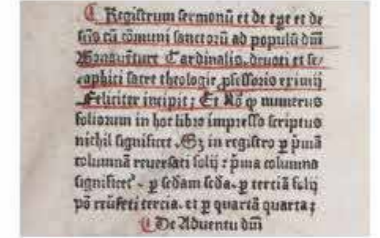 Registrum sermonū et de tꝑe et de
sc̄is cū cōmuni sanctorū ad populū dn̄i
Bonauenture Cardinalis, deuoti et se/
raphici sacre theologie ꝓfessoris eximij
Feliciter incipit; Et Nō ꝙ numerus
foliorum in hoc libro impresso scriptus
nichil significet. Sꝫ in registro ꝑ p̄mā
columnā reuersati folij: p̄ma columna
significet᷑ ꝑ sc̄dam sc̄da. ꝑ terciā folij
pō
et ꝑ quartā quarta;
De Aduentu dn̄i